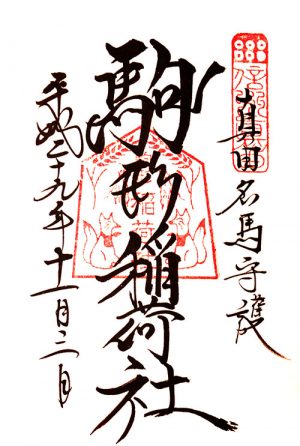 真田名馬守護
駒形稲荷社
平成二十九年十一月二日
稲荷